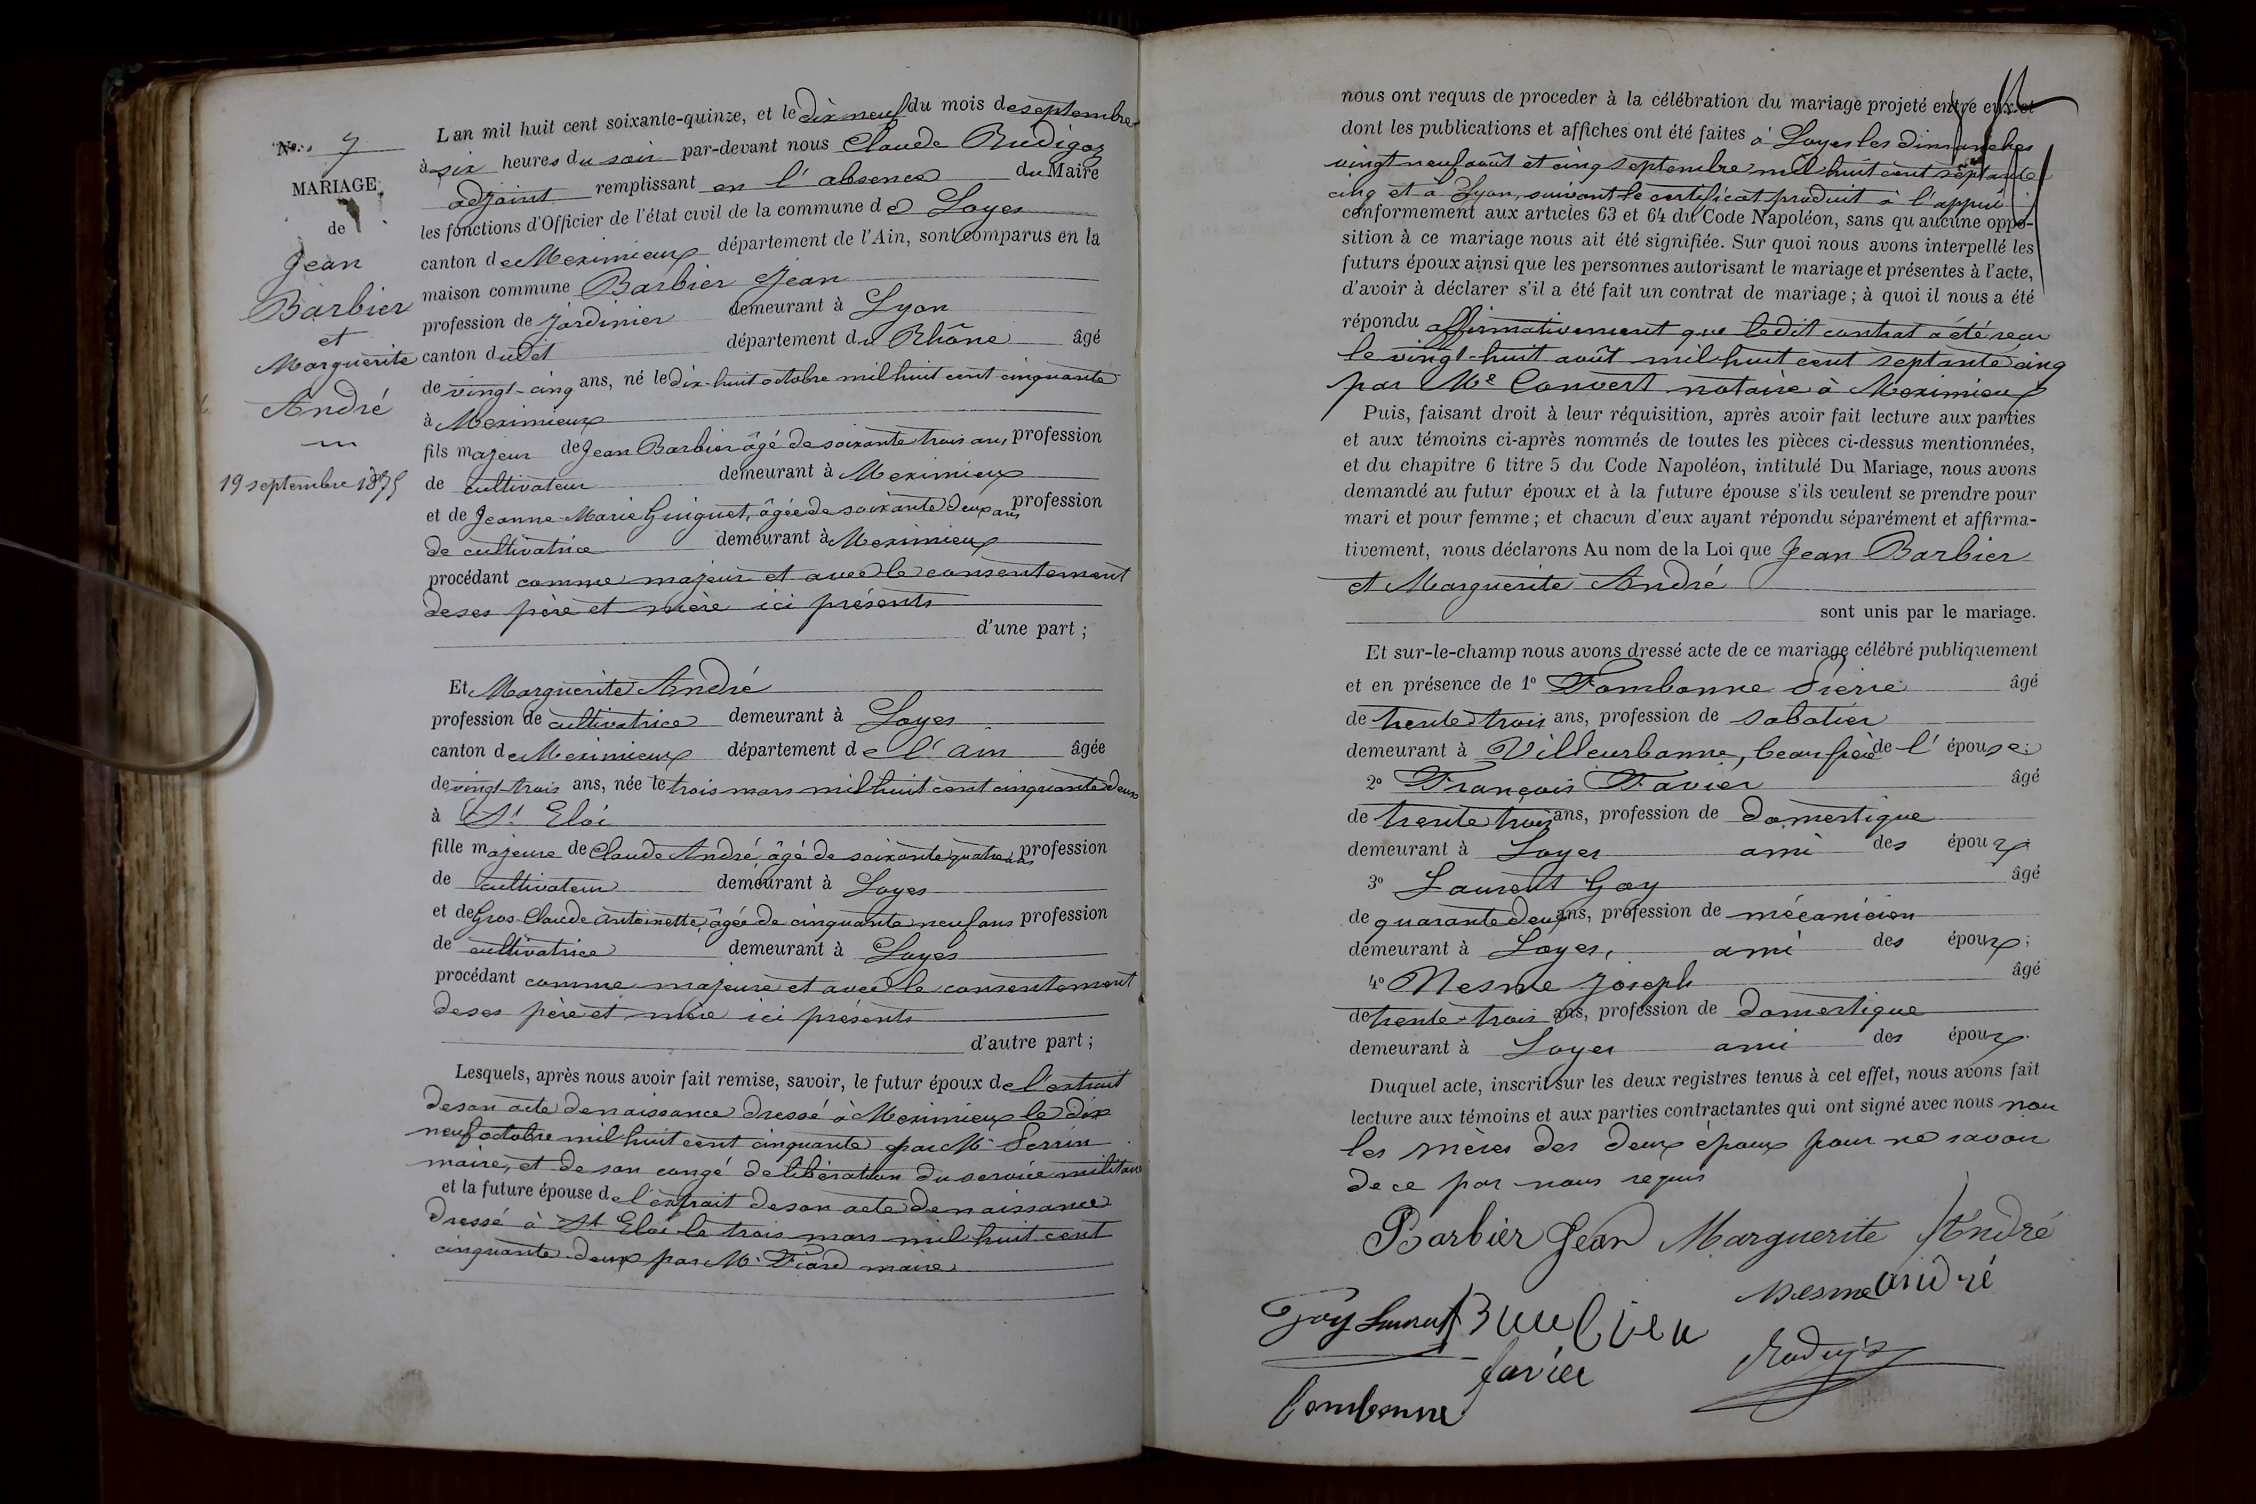 No. 7
MARIAGE
de
Jean
Barbier
et
Marguerite
André
19 septembre 1875
L'an mil huit cent soixante-quinze, et le dix neuf du mois de septembre
à six heures du soir par-devant nous Claude Rudigoz
adjoint remplissant en l'absence du Maire
les fonctions d'Officier de l'état civil de la commune de Loyes
canton de Meximieux département de l'Ain, sont comparus en la
maison commune Barbier Jean
profession de jardinier demeurant à Lyon
canton dudit département du Rhône âgé
de vingt-cinq ans, né le dix-huit octobre mil huit cent cinquante
à Meximieux
fils majeur de Jean Barbier âgé de soixante trois ans, profession
de cultivateur demeurant à Meximieux
et de Jeanne-Marie Guiguet, âgée de soixante deux ans profession
de cultivatrice demeurant à Meximieux
procédant comme majeur et avec le consentement
de ses père et mère ici présents
d'une part ;
Et Marguerite André
profession de cultivatrice demeurant à Loyes
canton de Meximieux département de l'ain âgée
de vingt-trois ans, née le trois mars mil huit cent cinquante deux
à St Eloi
fille majeure de Claude André, âgé de soixante quatre ans profession
de cultivateur demeurant à Loyes
et de Gros-Claude Antoinette, âgée de cinquante neuf ans profession
de cultivatrice demeurant à Loyes
procédant comme majeure et avec le consentement
de ses père et mère ici présents
d'autre part ;
Lesquels, après nous avoir fait remise, savoir, le futur époux de l'extrait
de son acte de naissance dressé à Meximieux le dix
neuf octobre mil huit cent cinquante par Mr Perrin
maire, et de son congé de libération du service militaire
et la future épouse de l'extrait de son acte de naissance
dressé à St Eloi le trois mars mil huit cent
cinquante-deux par Mr Fiard maire
nous ont requis de proceder à la célébration du mariage projeté entre eux et
dont les publications et affiches ont été faites à Loyes les dimanches
vingt neuf août et cinq septembre mil huit cent septante
cinq et à Lyon, suivant le certificat produit à l'appui
conformement aux articles 63 et 64 du Code Napoléon, sans qu'aucune oppo-
sition à ce mariage nous ait été signifiée. Sur quoi nous avons interpellé les
futurs époux ainsi que les personnes autorisant le mariage et présentes à l'acte,
d'avoir à déclarer s'il a été fait un contrat de mariage ; à quoi il nous a été
répondu affirmativement que ledit contrat a été reçu
le vingt-huit août mil huit cent septante cinq
par Me Convert notaire à Meximieux
Puis, faisant droit à leur réquisition, après avoir fait lecture aux parties
et aux témoins ci-après nommés de toutes les pièces ci-dessus mentionnées,
et du chapitre 6 titre 5 du Code Napoléon, intitulé Du Mariage, nous avons
demandé au futur époux et à la future épouse s'ils veulent se prendre pour
mari et pour femme ; et chacun d'eux ayant répondu séparément et affirma-
tivement, nous déclarons Au nom de la Loi que Jean Barbier
et Marguerite André
sont unis par le mariage.
Et sur-le-champ nous avons dressé acte de ce mariage célébré publiquement
et en présence de 1o Fombonne Pierre âgé
de trente trois ans, profession de sabotier
demeurant à Villeurbanne, beaufrère de l'épouse ;
2o François Favier âgé
de trente trois ans, profession de domestique
demeurant à Loyes ami des époux ;
3o Laurent Goy âgé
de quarante deux ans, profession de mécanicien
demeurant à Loyes, ami des époux ;
4o Nesme Joseph âgé
de trente-trois ans, profession de domestique
demeurant à Loyes ami des époux.
Duquel acte, inscrit sur les deux registres tenus à cet effet, nous avons fait
lecture aux témoins et aux parties contractantes qui ont signé avec nous non
les mères des deux époux pour ne savoir
de ce par nous requis
Barbier Jean Marguerite André
Nesme André
Goy Laurent
favier
fombonne